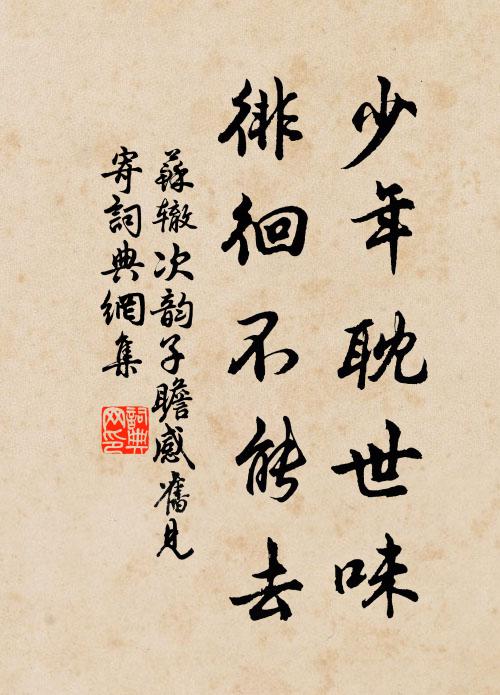 少年耽世味
徘徊不能去
蘇辙次韵子瞻感舊見
寄詞典網集
詞典網印